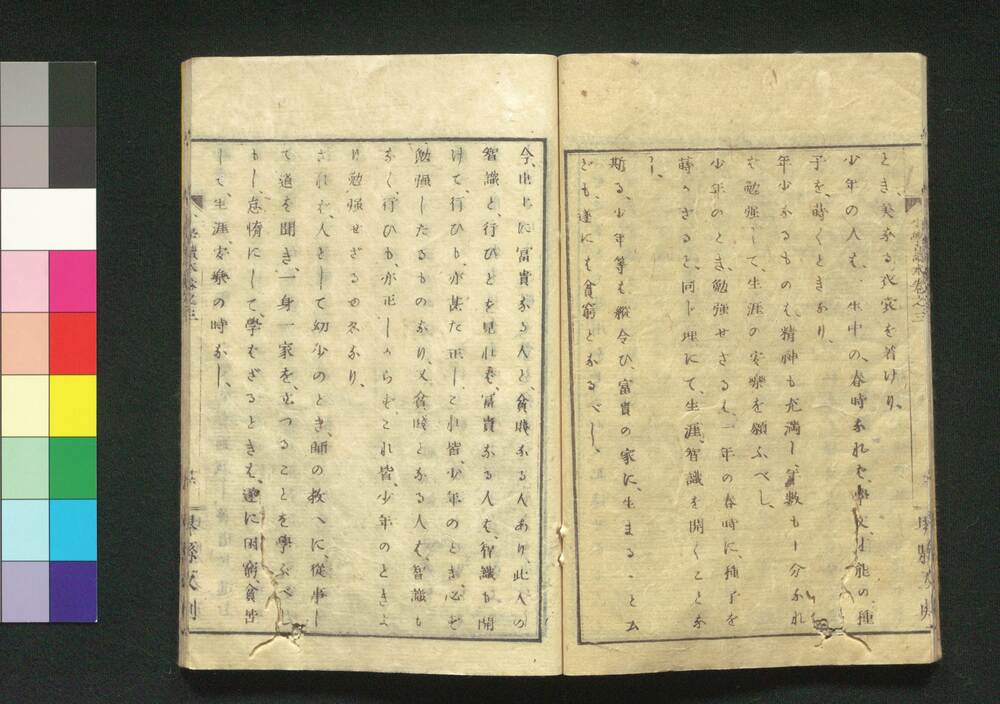 とき、美なる衣裳を着けり、
少年の人も、生中の、春時なれば、學文、才能の、種
子を、蒔くときなり、
年少なるものも、精神も充滿し、年數も十分なれ
ば、勉強して、生涯の安樂を願ふべし、
少年のとき、勉強せざるも、一年の春時に、種子を
蒔かざると、同じ理にて、生涯、智識を開くことな
し、
斯る、少年等も縱令ひ、富貴の家に、生まるゝと云
ども、遂にも貧窮となるべし、
今、世上に富貴なる人と、貧賎なる人あり、此人の
智識と、行ひとを見れば、富貴なる人も、智識も開
けて、行ひも、亦甚だ正し、これ皆、少年のとき、心を
勉強したるものなり、又貧賎となる人も、智識も
なく、行ひも、亦正しからず、これ皆、少年のときよ
り勉強せざる也
されば、人として幼少のとき、師の教へに、從事し
て道を聞き、一身一家を、立つることを學ぶべし
もし、怠惰にして、學ばざるときも、遂に困窮、貧苦
して、生涯、安樂の時なし、
小學讀本卷之三